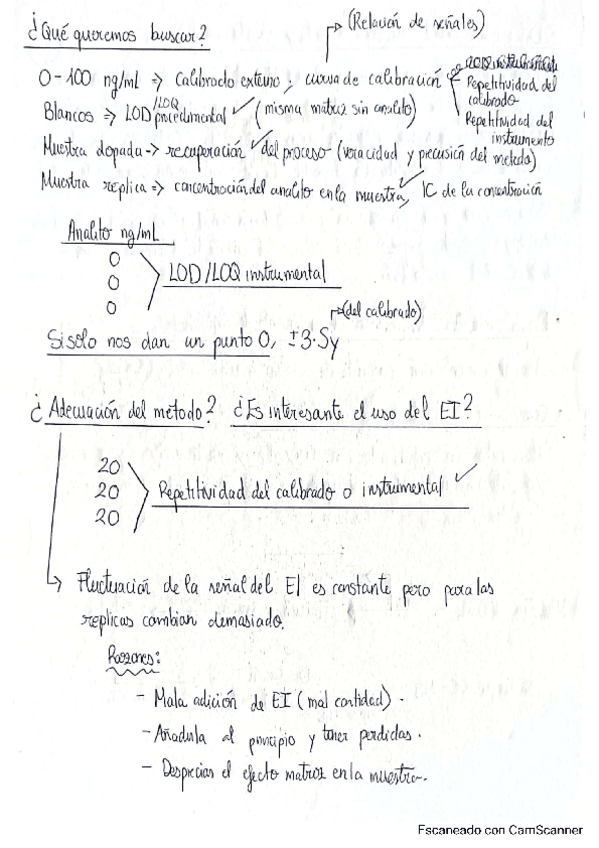 (Relación de señales)
¿Qué queremos buscar?
0-100 ng/ml => Calibrado externo; curva de calibración
Repetitividad del
calibrado
Repetitividad del
instrumento
Blancos => LOD/LOQ procedimental ✓ (misma matriz sin analito)
Muestra dopada -> recuperación ✓ del proceso (veracidad y precisión del metodo)
Muestra replica => concentración del analito en la muestra ✓, IC de la concentración
Analito ng/mL
0
0
0
LOD/LOQ instrumental
(del calibrado)
Si solo nos dan un punto 0, ±3·Sy
¿Adecuación del método? ¿Es interesante el uso del EI?
20
20
20
Repetitividad del calibrado o instrumental ✓
Fluctuación de la señal del EI es constante pero para las
replicas cambian demasiado.
Razones:
- Mala adición de EI (mal cantidad).
- Añadirla al principio y tener perdidas.
- Desprecias el efecto matriz en la muestra.
Escaneado con CamScanner